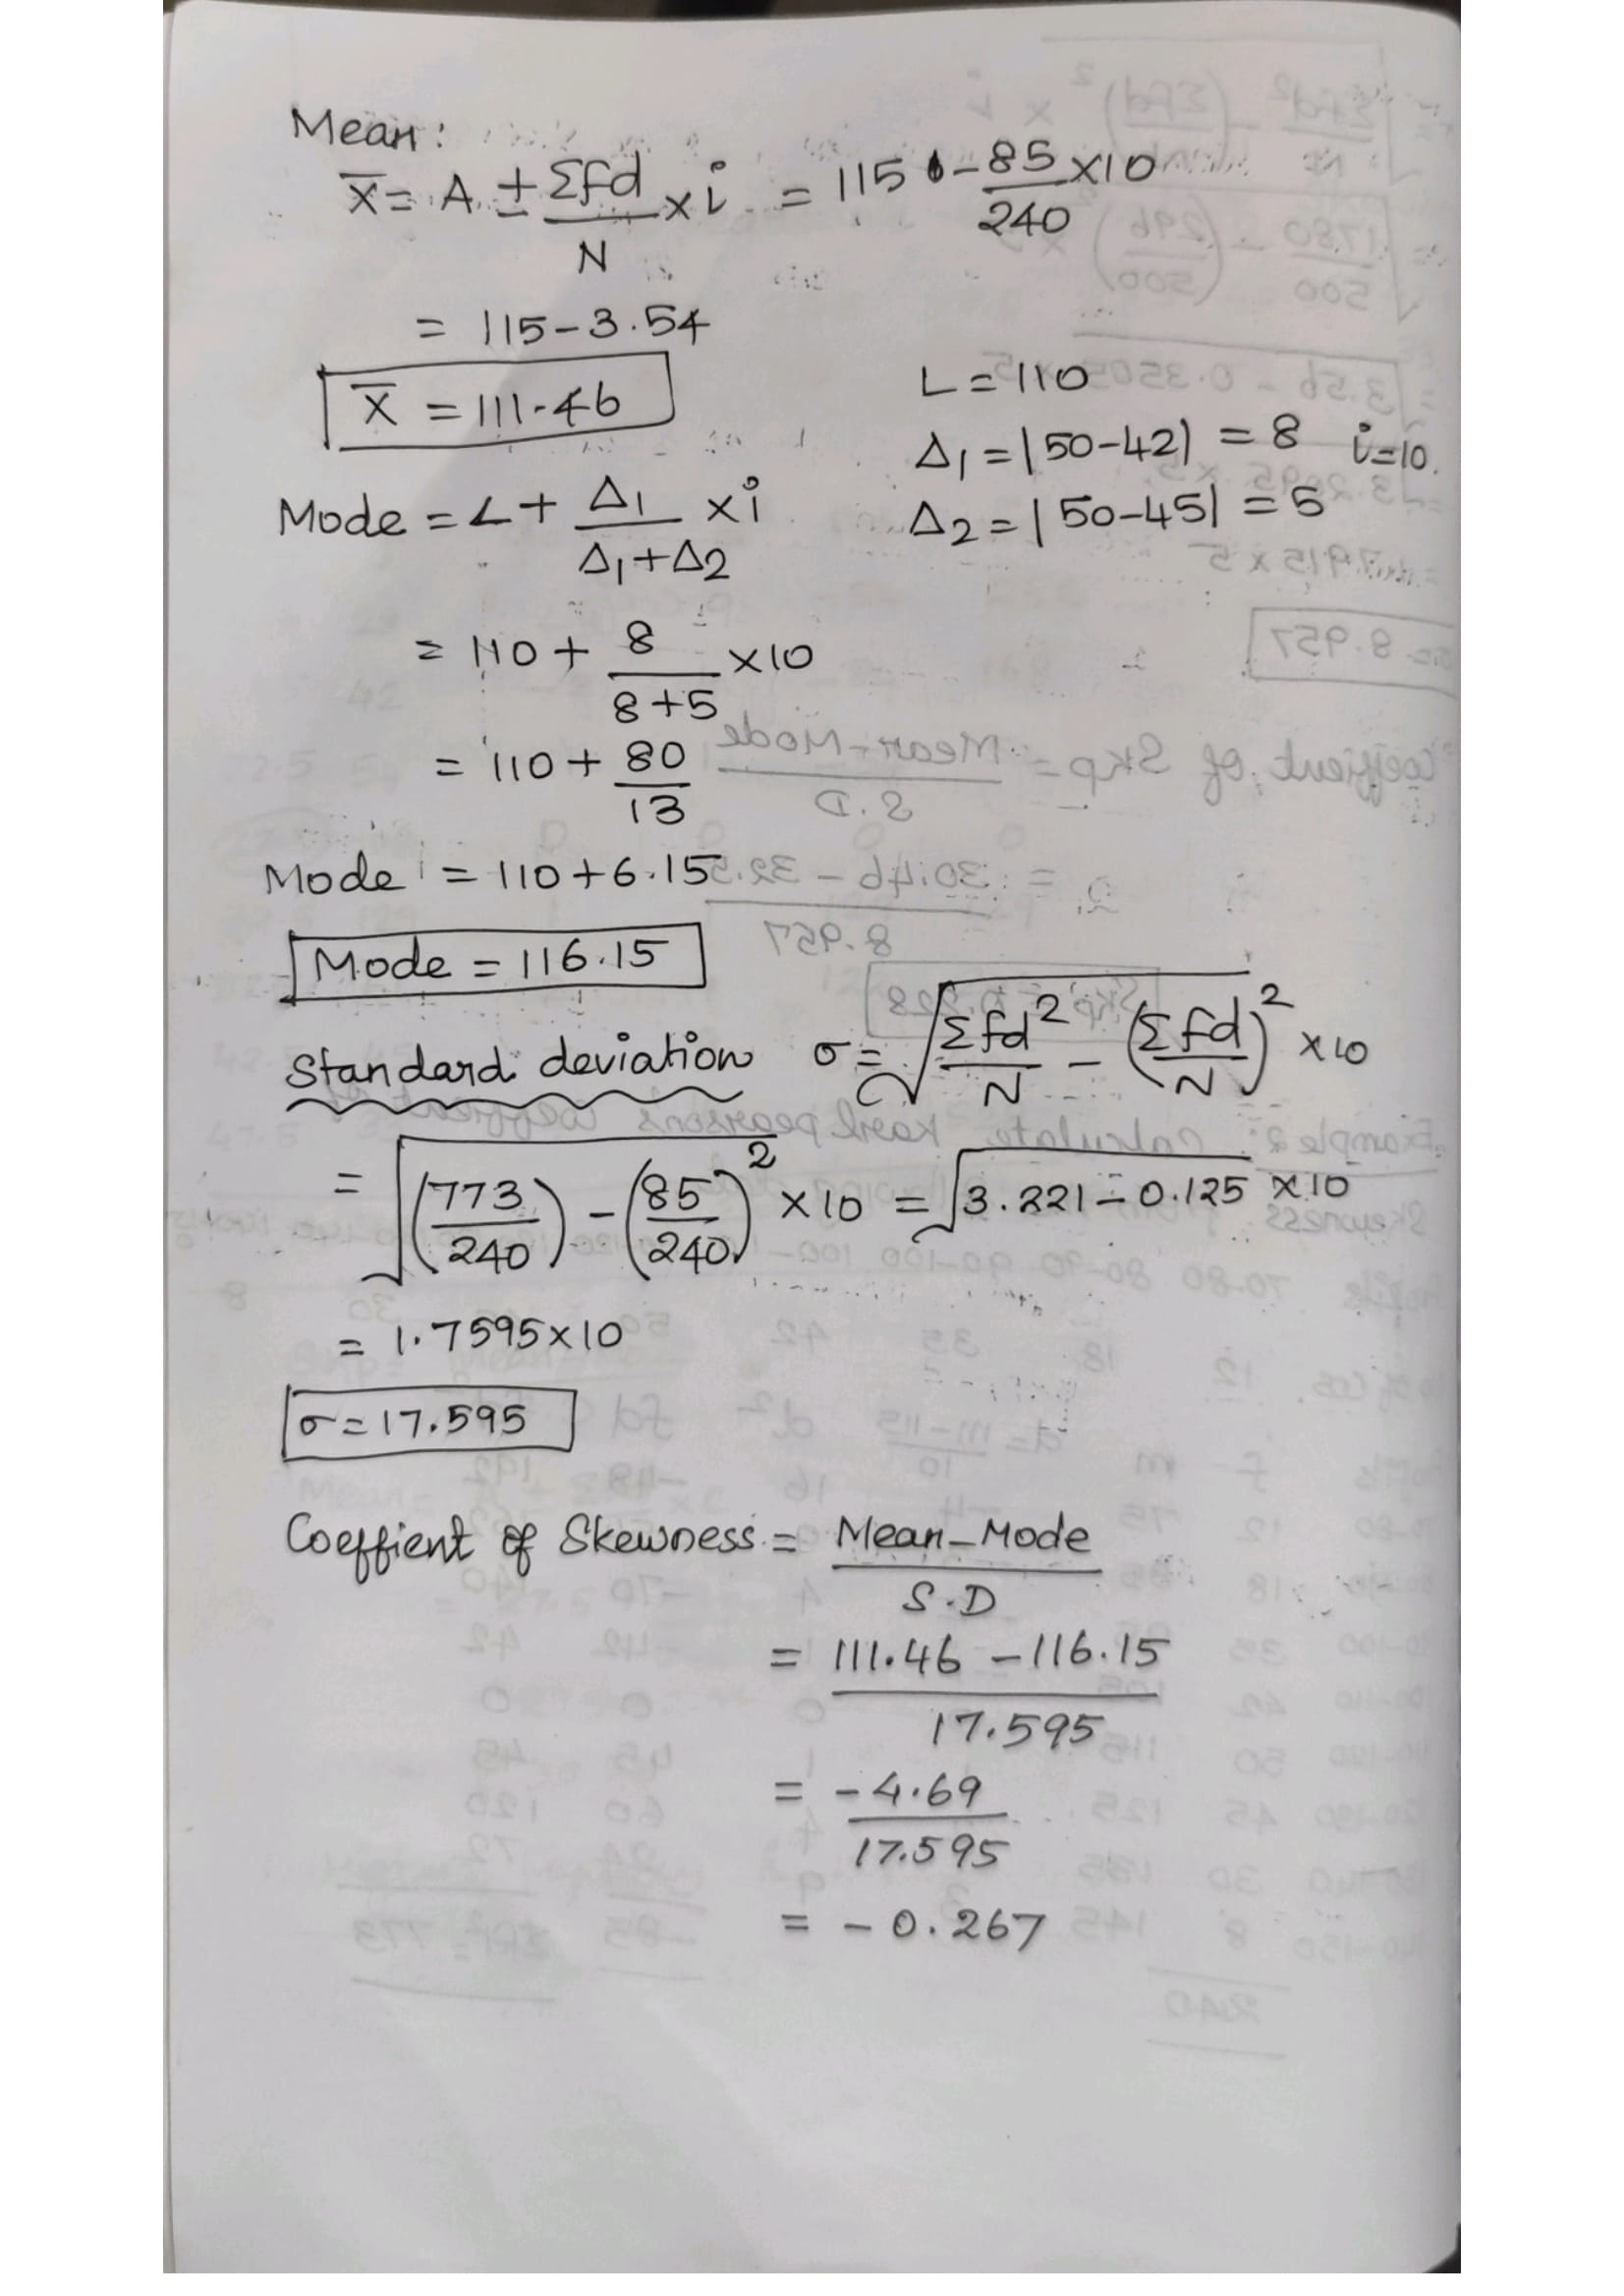 Mean:
X̄ = A ± Σfd/N × i = 115 - 85/240 × 10
= 115 - 3.54
X̄ = 111.46
L = 110
Δ1 = |50-42| = 8 i=10.
Δ2 = |50-45| = 5
Mode = L + Δ1/(Δ1+Δ2) × i
= 110 + 8/(8+5) × 10
= 110 + 80/13
Mode = 110 + 6.15
Mode = 116.15
Standard deviation σ = √(Σfd²/N - (Σfd/N)²) × 10
= √((773/240) - (85/240)²) × 10 = √(3.221 - 0.125) × 10
= 1.7595 × 10
σ = 17.595
Coeffient of Skewness = Mean - Mode / S.D
= 111.46 - 116.15 / 17.595
= -4.69 / 17.595
= - 0.267